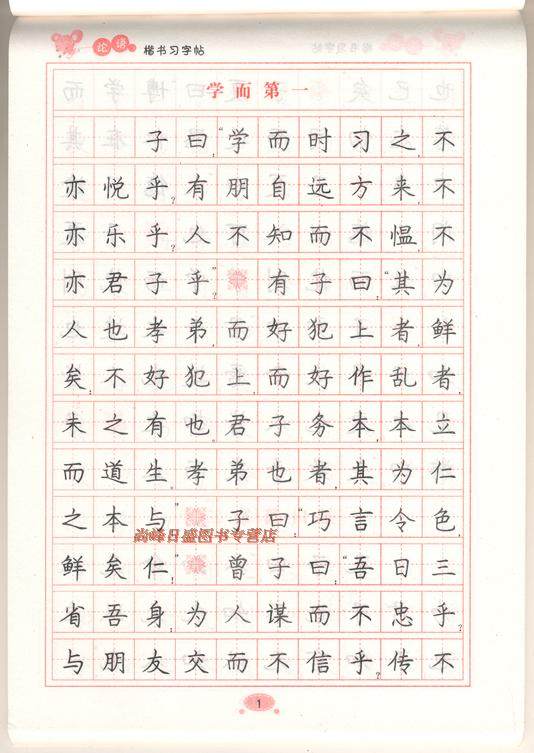 论语 楷书习字帖
学而第一
子曰:“学而时习之,不
亦悦乎?有朋自远方来,不
亦乐乎?人不知而不愠,不
亦君子乎?” 有子曰:“其为
人也孝弟,而好犯上者,鲜
矣;不好犯上,而好作乱者,
未之有也。君子务本,本立
而道生。孝弟也者,其为仁
之本与!” 子曰:“巧言令色,
尚峰日盛图书专营店
鲜矣仁!” 曾子曰:“吾日三
省吾身:为人谋而不忠乎?
与朋友交而不信乎?传不
1